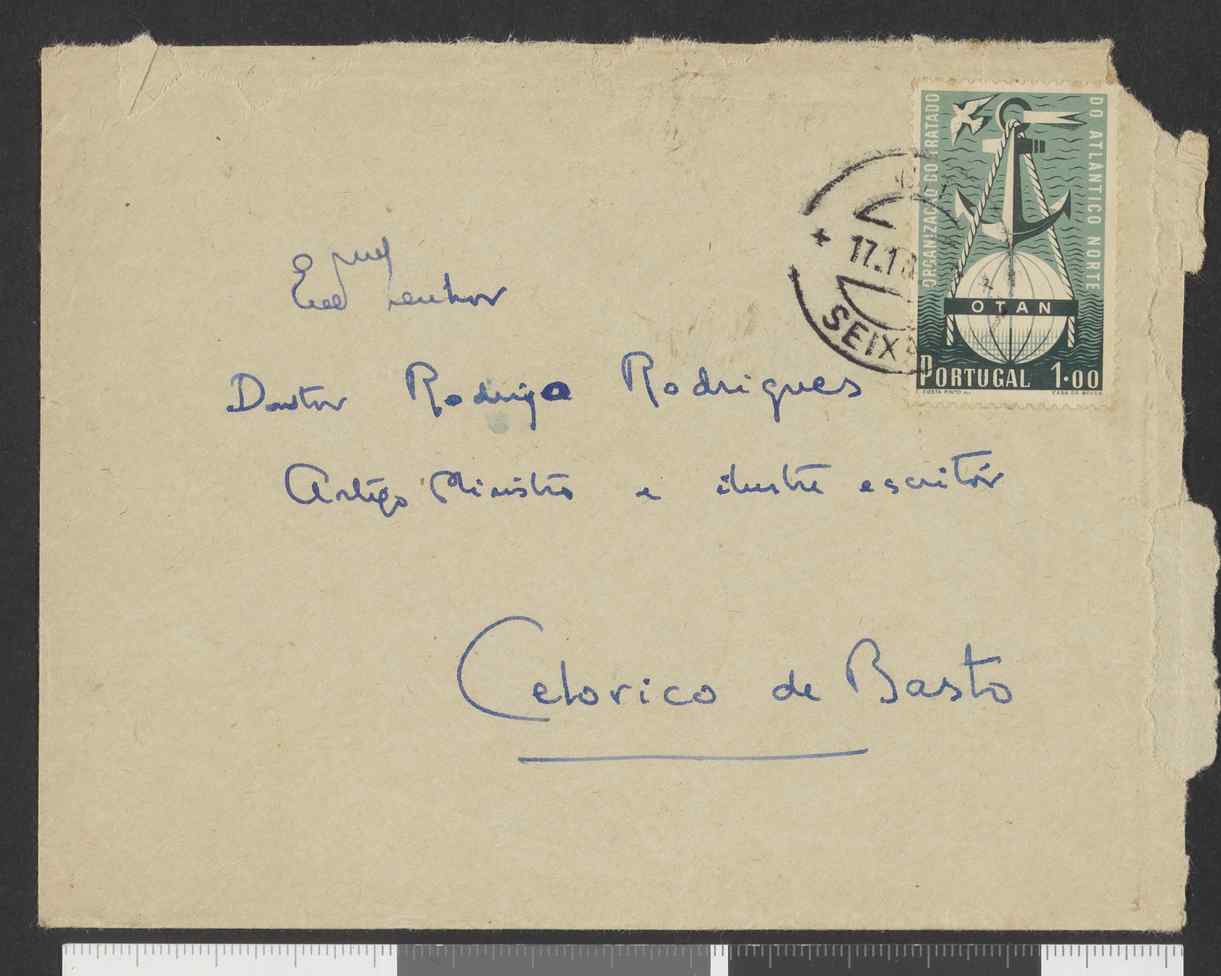 ORGANIZAÇÃO DO TRATADO
DO ATLANTICO NORTE
OTAN
PORTUGAL 1.00
COSTA PINTO
CASA DA MOEDA
17.1
SEIX
Senhor
Doutor Rodrigo Rodrigues
Antigo Ministro e ilustre escritor
Celorico de Basto